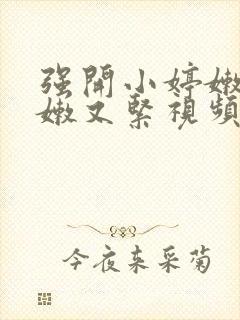 强開小婷嫩
嫩又緊視頻
今夜来采菊